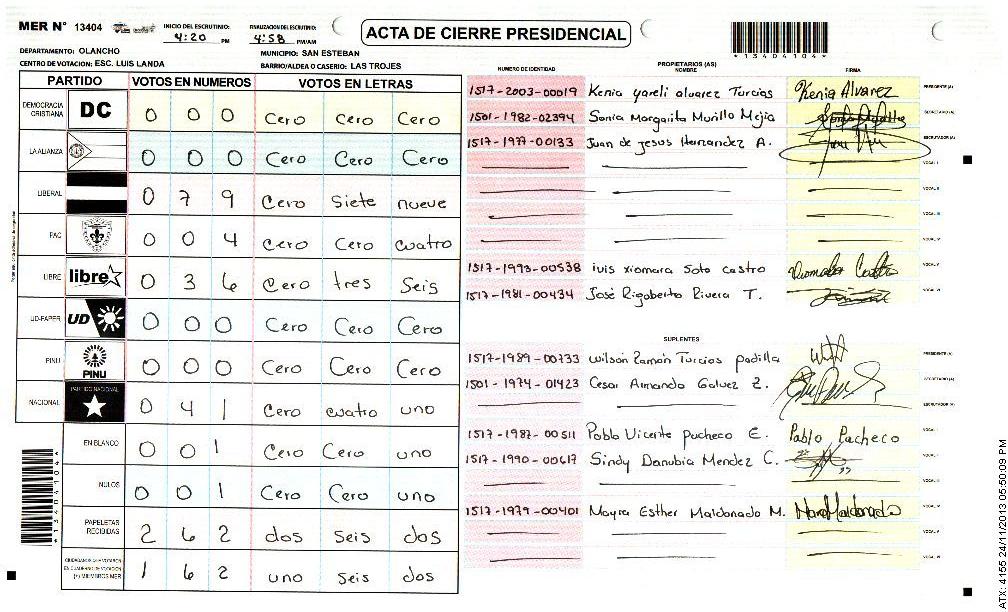 MER N° 13404
INICIO DEL ESCRUTINIO: 4:20 PM
FINALIZACION DEL ESCRUTINIO: 4:58 PM/AM
ACTA DE CIERRE PRESIDENCIAL
*13404104*
DEPARTAMENTO: OLANCHO
MUNICIPIO: SAN ESTEBAN
CENTRO DE VOTACION: ESC. LUIS LANDA
BARRIO/ALDEA O CASERIO: LAS TROJES
PARTIDO VOTOS EN NUMEROS VOTOS EN LETRAS
DEMOCRACIA CRISTIANA DC 0 0 0 Cero Cero Cero
LA ALIANZA 0 0 0 Cero Cero Cero
LIBERAL 0 7 9 Cero Siete nueve
PAC 0 0 4 Cero Cero cuatro
LIBRE libre 0 3 6 Cero tres Seis
UD-FAPER UD 0 0 0 Cero Cero Cero
PINU PINU 0 0 0 Cero Cero Cero
NACIONAL PARTIDO NACIONAL 0 4 1 Cero cuatro uno
EN BLANCO 0 0 1 Cero Cero uno
NULOS 0 0 1 Cero Cero uno
PAPELETAS RECIBIDAS 2 6 2 dos seis dos
CIUDADANOS QUE VOTARON EN CUADERNO DE VOTACION (+) MIEMBROS MER 1 6 2 uno seis dos
*13404104*
NUMERO DE IDENTIDAD PROPIETARIOS (AS) NOMBRE FIRMA
1517-2003-00019 Kenia yareli alvarez Turcios Kenia Alvarez PRESIDENTE (A)
1501-1982-02394 Sonia Margarita Murillo Mejia SECRETARIO (A)
1517-1977-00133 Juan de Jesus Hernandez A. ESCRUTADOR (A)
VOCAL I
VOCAL II
VOCAL III
VOCAL IV
1517-1993-00538 iuis xiomara Soto castro VOCAL V
1517-1981-00434 José Rigoberto Rivera T. VOCAL VI
SUPLENTES
1517-1989-00733 Wilson Ramón Turcios padilla PRESIDENTE (A)
1501-1974-01423 Cesar Armando Galvez Z. SECRETARIO (A)
ESCRUTADOR (A)
1517-1987-00511 Pablo Vicente pacheco E. Pablo Pacheco VOCAL I
1517-1990-00617 Sindy Danubia Mendez C. VOCAL II
VOCAL III
1517-1979-00401 Mayra Esther Maldonado M. VOCAL IV
VOCAL V
VOCAL VI
ATX: 4155 24/11/2013 05:50:09 PM